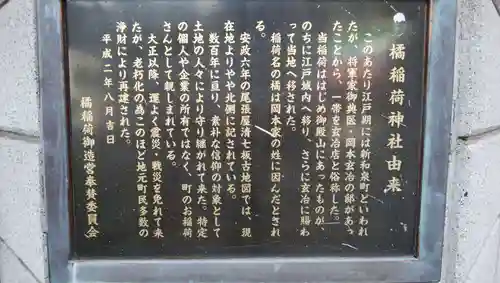 橘稲荷神社由来
このあたり江戸期には新和泉町といわれ
たが、将軍家御典医・岡本玄冶の邸があっ
たことから、一帯を玄冶店と俗称した。
当稲荷ははじめ御殿山にあったものが
のちに江戸城内へ移り、さらに玄冶に賜わ
って当地へ移された。
稲荷名の橘は岡本家の姓に因んだとされ
る。
安政六年の尾張屋清七板古地図では、現
在地よりやや北側に記されている。
数百年に亘り、素朴な信仰の対象として
土地の人々により守り継がれて来た。特定
の個人や企業の所有ではなく、町のお稲荷
さんとして親しまれている。
大正以降、運よく震災・戦災を免れて来
たが、老朽化の為このほど地元町民多数の
浄財により再建された。
平成二年八月吉日
橘稲荷御造営奉賛委員会